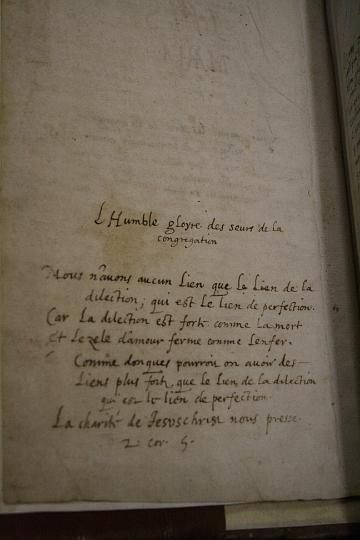 L'Humble gloyre des seurs de la
congregation
Nous n'avons aucun Lien que le Lien de la
dilection, qui est le lien de perfection.
Car La dilection est forte comme la mort
et Le zele d'amour ferme comme l'enfer.
Comme donques pourroit on avoir des
Liens plus forts que le Lien de la dilection
qui est le lien de perfection.
La charité de Jesuschrist nous presse.
2 cor. 5.